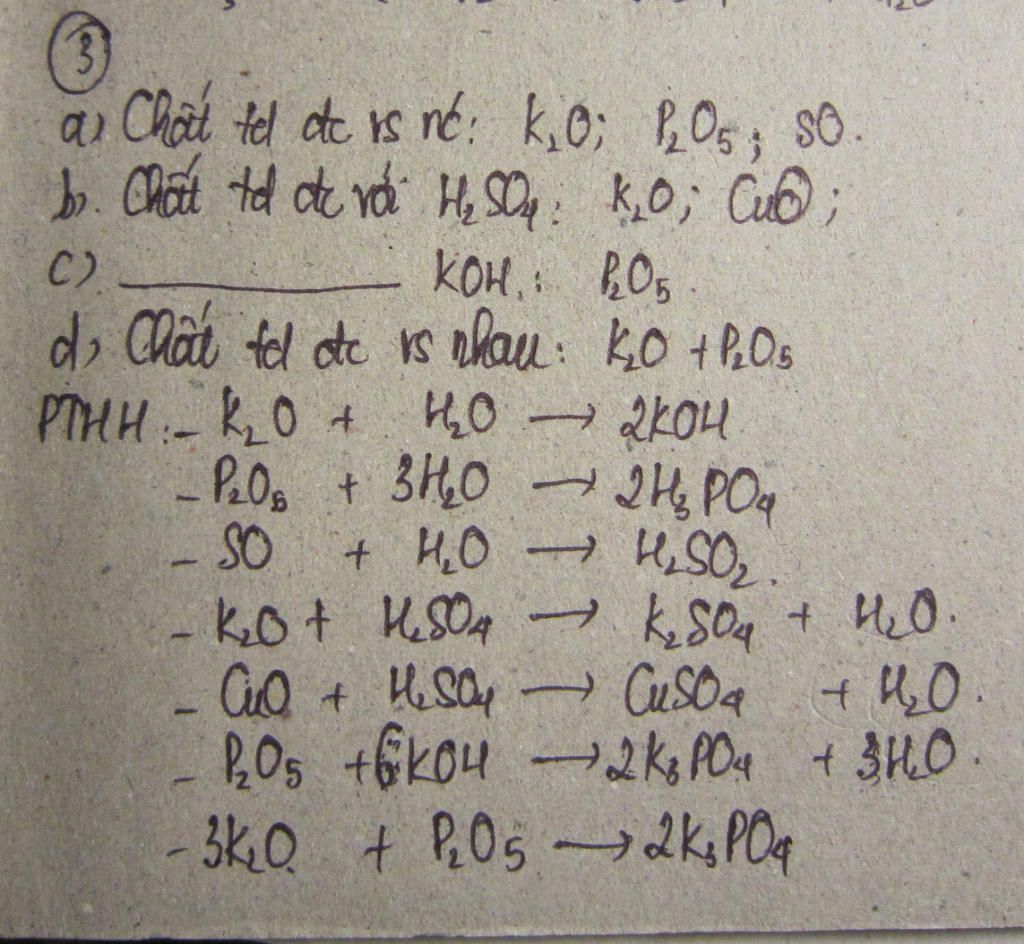 3
a) Chất td đc vs nc: K₂O; P₂O₅; SO.
b. Chất td đc với H₂SO₄: K₂O; CuO;
c) ________ KOH: P₂O₅.
d) Chất td đc vs nhau: K₂O + P₂O₅
PTHH: - K₂O + H₂O → 2KOH
- P₂O₅ + 3H₂O → 2H₃PO₄
- SO + H₂O → H₂SO₂.
- K₂O + H₂SO₄ → K₂SO₄ + H₂O.
- CuO + H₂SO₄ → CuSO₄ + H₂O.
- P₂O₅ + 6KOH → 2K₃PO₄ + 3H₂O.
- 3K₂O + P₂O₅ → 2K₃PO₄